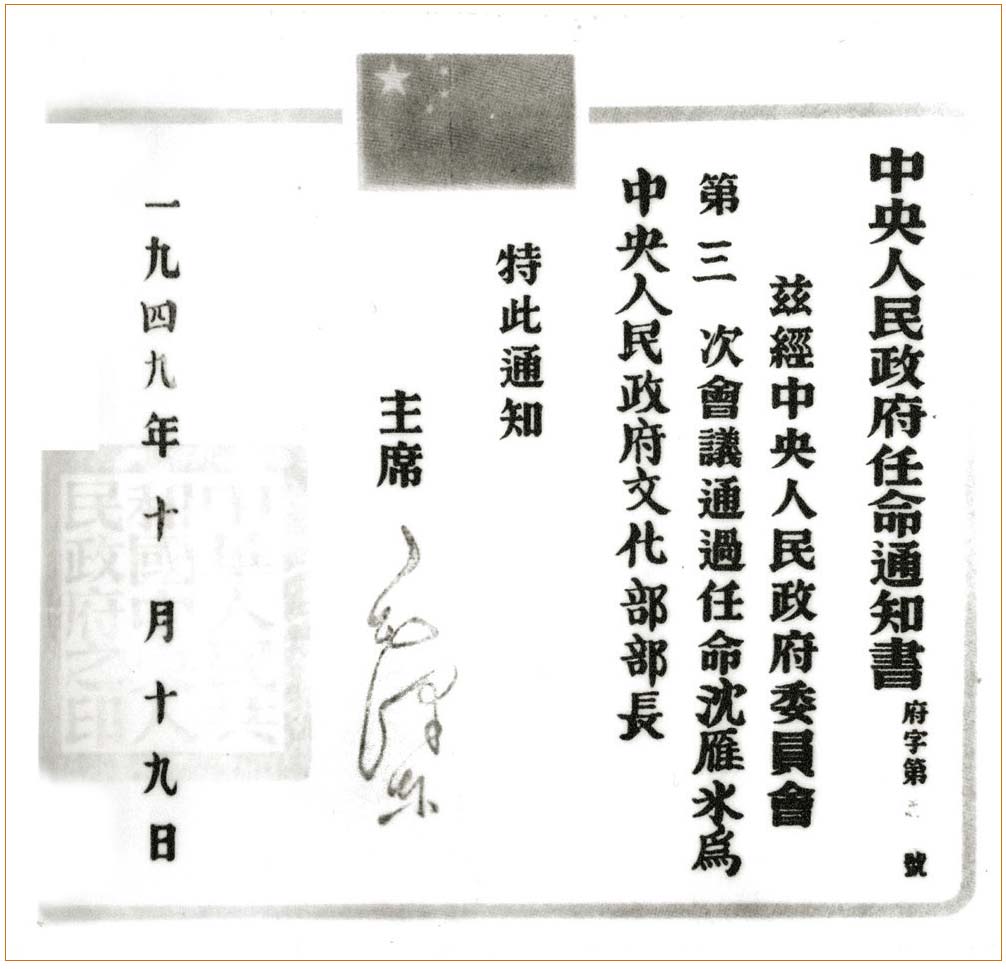 中央人民政府任命通知書
府字第 號
兹經中央人民政府委員會
第三次會議通過任命沈雁氷爲
中央人民政府文化部部長
特此通知
主席 毛澤東
一九四九年十月十九日
中華人民共
和國中央人
民政府之印